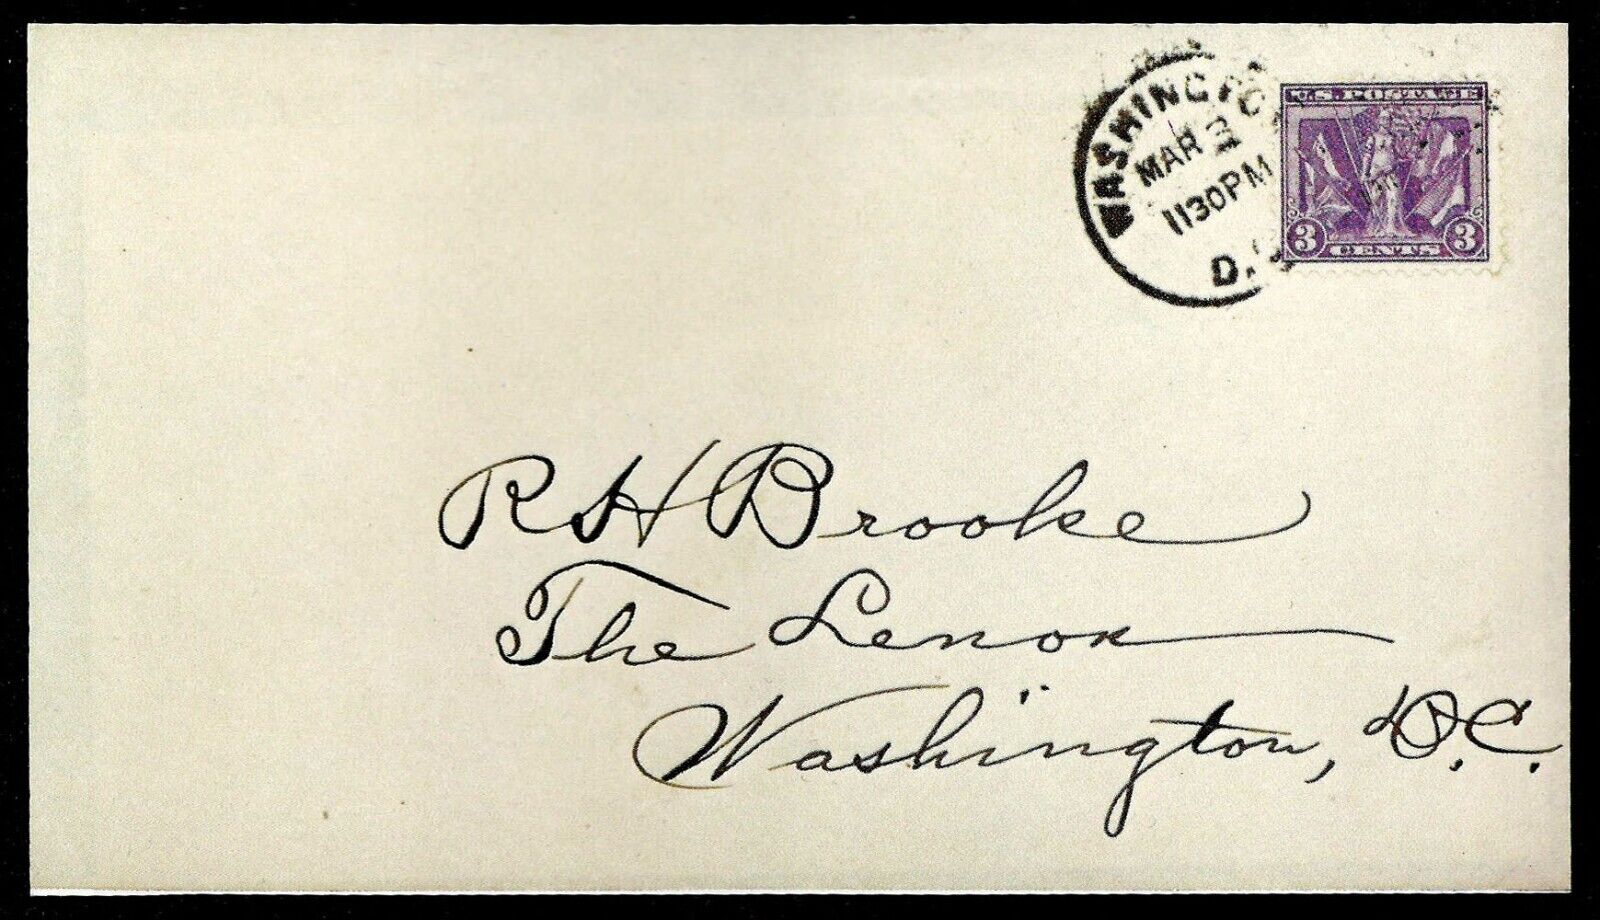 WASHINGTO
MAR 3
1130PM
D.
U.S. POSTAGE
3 CENTS 3
R H Brooke
The Lenox
Washington, D.C.